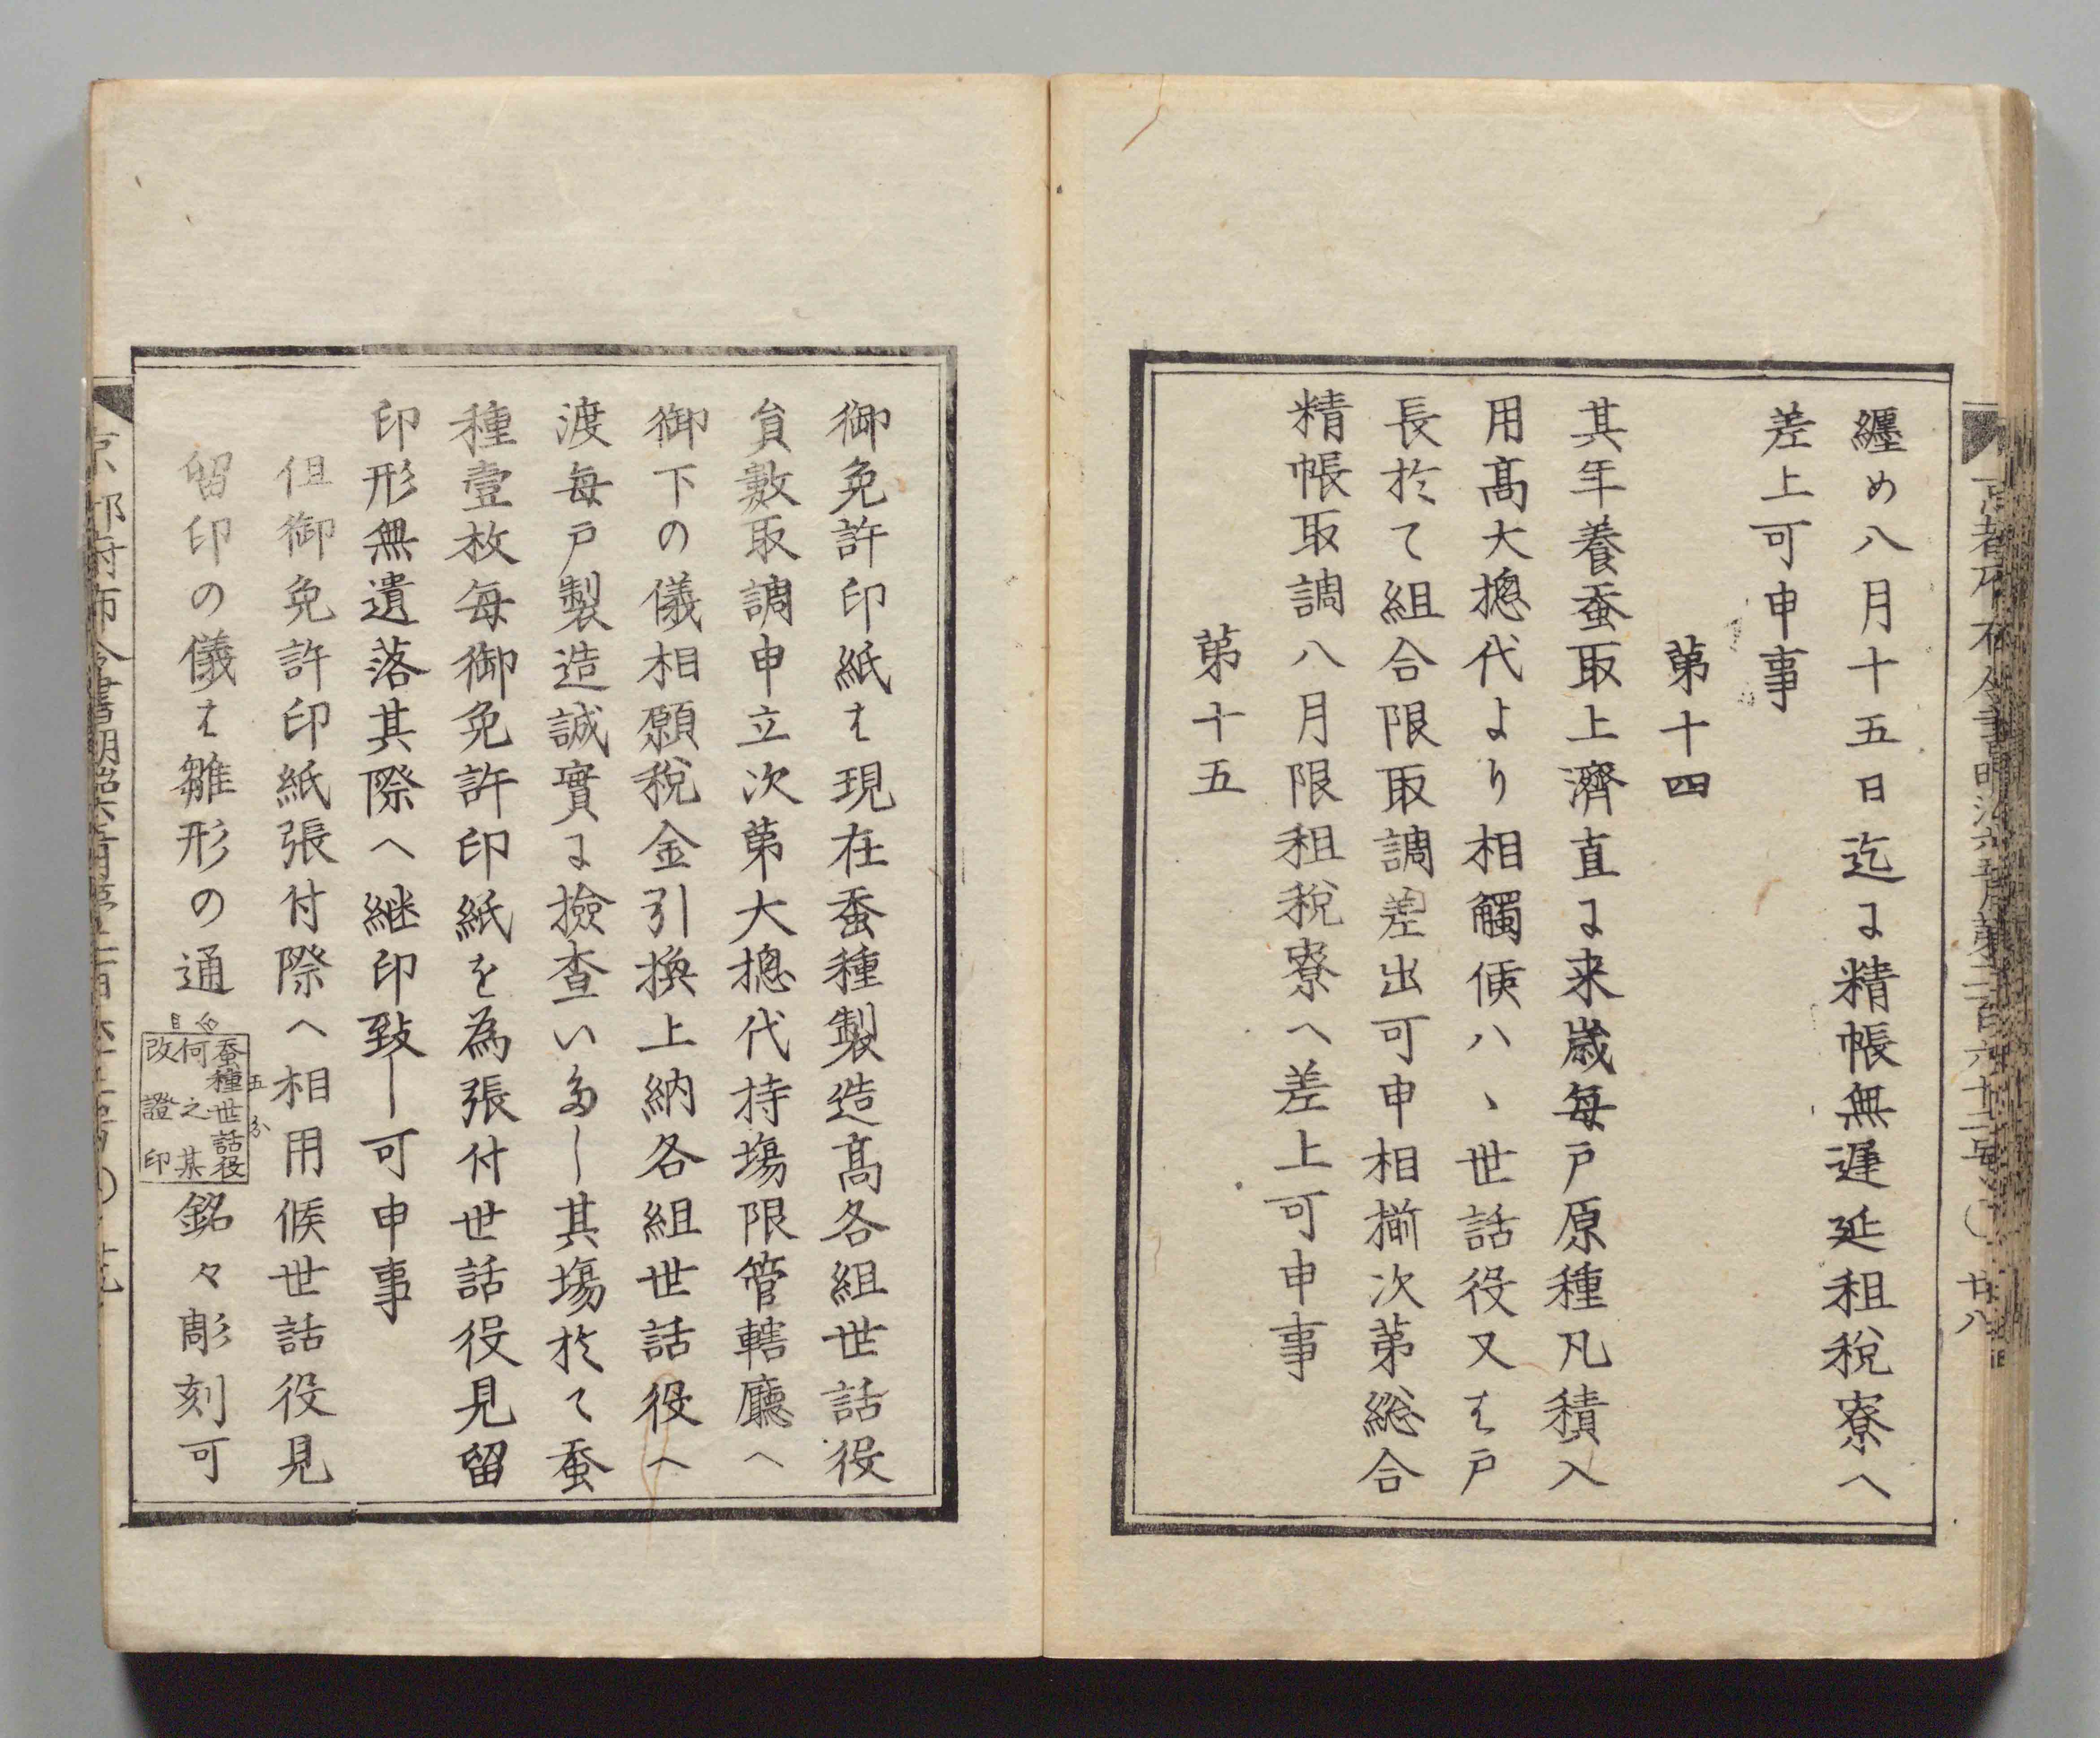 纒め八月十五日迄に精帳無遅延租税寮へ
差上可申事
第十四
其年養蚕取上濟直に来歳毎戸原種凡積入
用髙大揔代より相觸候ハヽ世話役又は戸
長於て組合限取調差出可申相揃次第総合
精帳取調八月限租税寮へ差上可申事
第十五
御免許印紙は現在蚕種製造髙各組世話役
員數取調申立次第大揔代持塲限管轄廳へ
御下の儀相願税金引換上納各組世話役へ
渡毎戸製造誠實に撿査いたし其塲於て蚕
種壹枚毎御免許印紙を為張付世話役見留
印形無遺落其際へ継印致し可申事
但御免許印紙張付際へ相用候世話役見
留印の儀は雛形の通
蚕種世話役
何之某
改證印
五分
銘々彫刻可
廿八